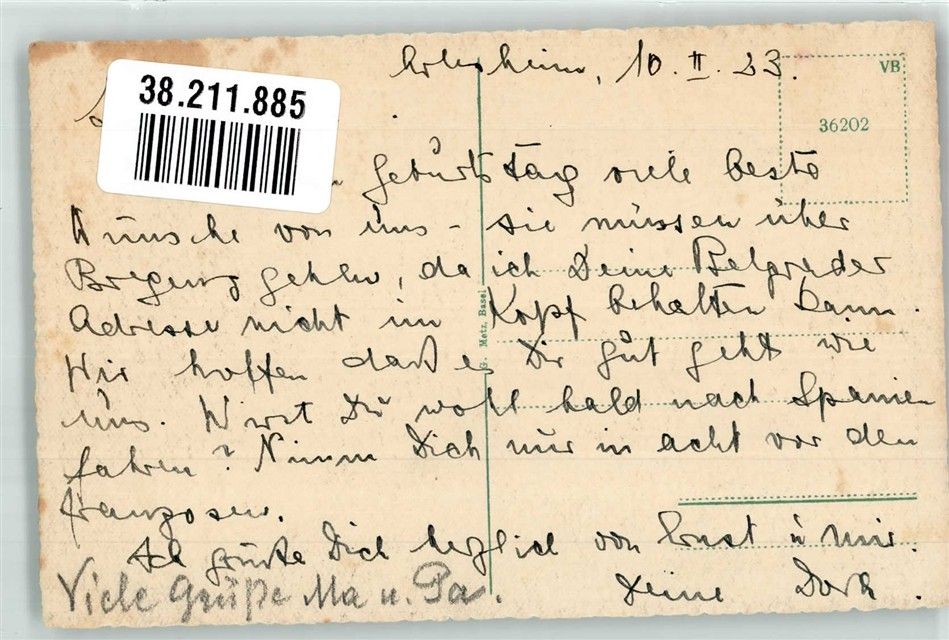 Arlesheim, 10. II. 23.
VB
36202
38.211.885
Geburtstag viele beste
Wünsche von uns - sie müssen über
Bregenz gehen, da ich Deine Belgrader
Adresse nicht im Kopf behalten kann.
Wir hoffen daß es Dir gut geht wie
uns. Wirst Du wohl bald nach Spanien
fahren? Nimm Dich nur in acht vor den
Franzosen.
Ich grüße Dich herzlich von Ernst u mir.
Deine
Viele Grüße Ma u. Pa.
G. Metz, Basel